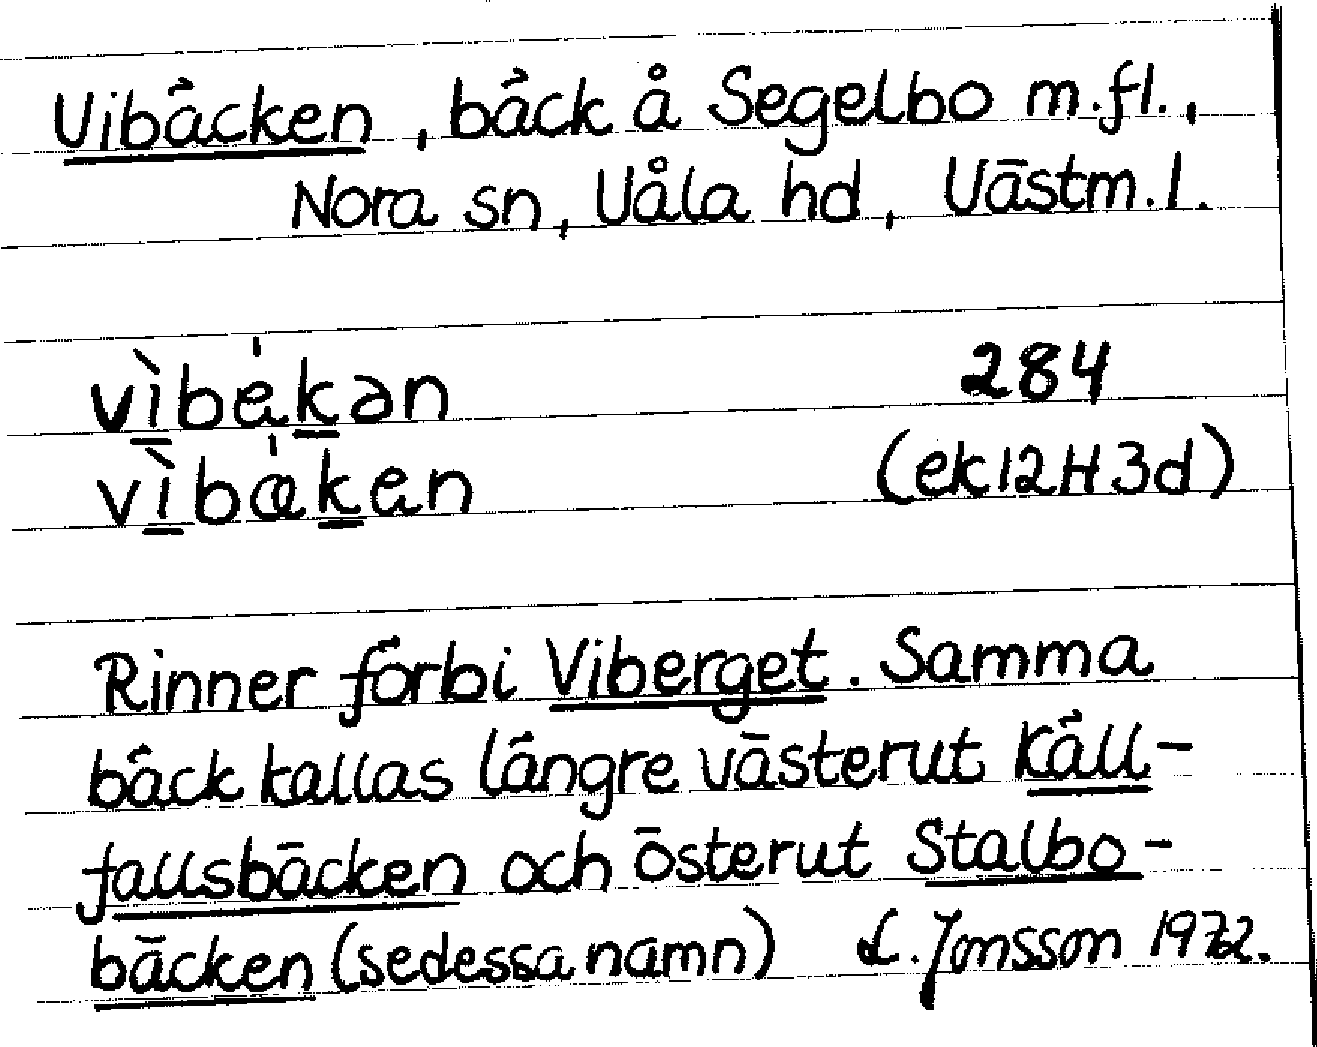 Vibäcken, bäck å Segelbo m.fl.,
Nora sn, Våla hd, Västm.l.
vìbä́kən 284
vìbä́ken (ek 12H3d)
Rinner förbi Viberget. Samma
bäck kallas längre västerut Käll-
fallsbäcken och österut Stalbo-
bäcken (se dessa namn) L. Jonsson 1972.